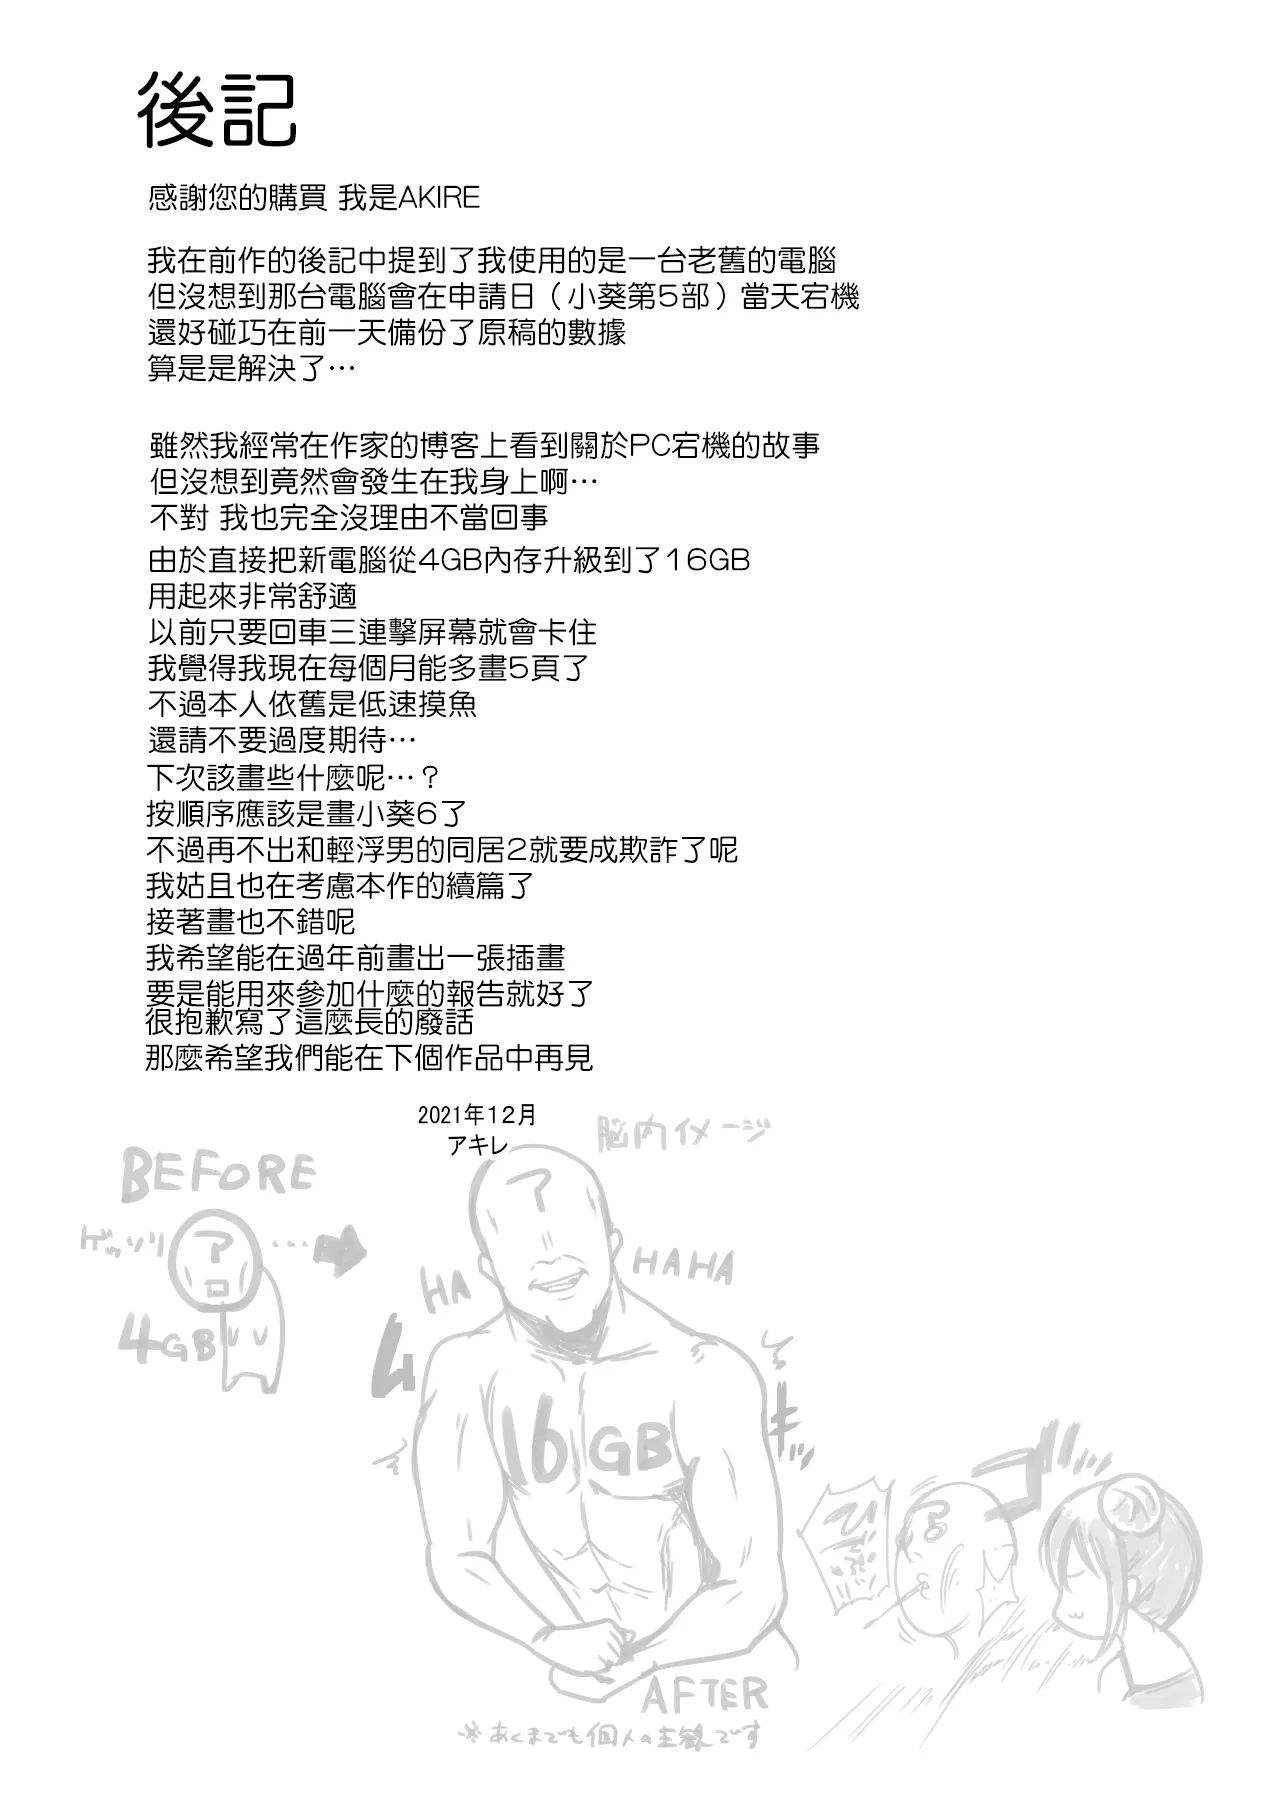 後記
感謝您的購買 我是AKIRE
我在前作的後記中提到了我使用的是一台老舊的電腦
但沒想到那台電腦會在申請日（小葵第5部）當天宕機
還好碰巧在前一天備份了原稿的數據
算是是解決了…
雖然我經常在作家的博客上看到關於PC宕機的故事
但沒想到竟然會發生在我身上啊…
不對 我也完全沒理由不當回事
由於直接把新電腦從4GB內存升級到了16GB
用起來非常舒適
以前只要回車三連擊屏幕就會卡住
我覺得我現在每個月能多畫5頁了
不過本人依舊是低速摸魚
還請不要過度期待…
下次該畫些什麼呢…？
按順序應該是畫小葵6了
不過再不出和輕浮男的同居2就要成欺詐了呢
我姑且也在考慮本作的續篇了
接著畫也不錯呢
我希望能在過年前畫出一張插畫
要是能用來參加什麼的報告就好了
很抱歉寫了這麼長的廢話
那麼希望我們能在下個作品中再見
2021年12月
アキレ
脳内イメージ
BEFORE
ゲッソリ
ア
…
4GB
ア
HA
HAHA
ム
キッ
16GB
AFTER
※あくまでも個人の主観です